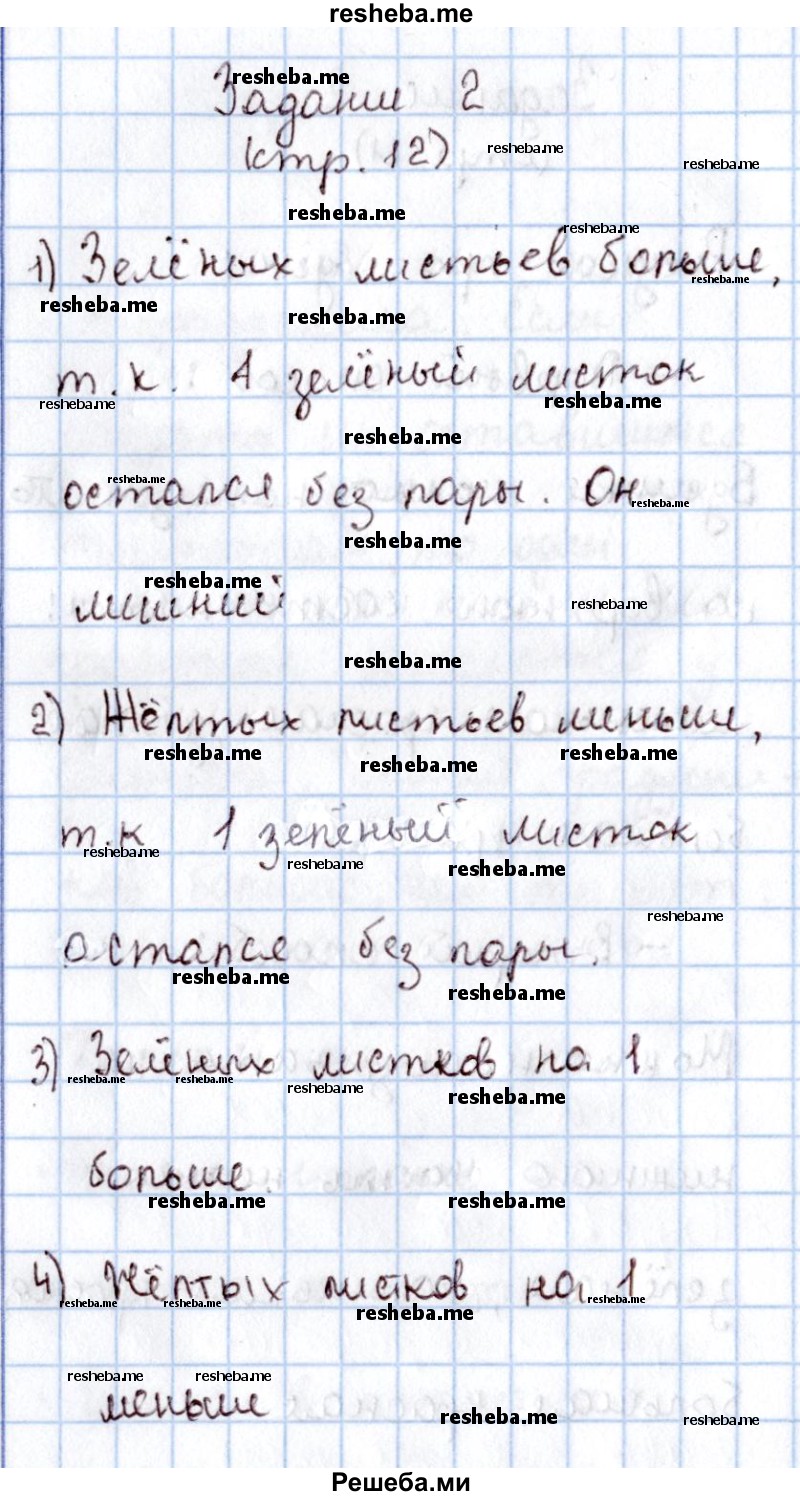 resheba.me
Задание 2
(стр. 12)
1) Зелёных листьев больше,
т.к. 1 зелёный листок
остался без пары. Он
лишний
2) Жёлтых листьев меньше,
т.к 1 зелёный листок
остался без пары.
3) Зелёных листков на 1
больше.
4) Жёлтых листков на 1
меньше
Решеба.ми